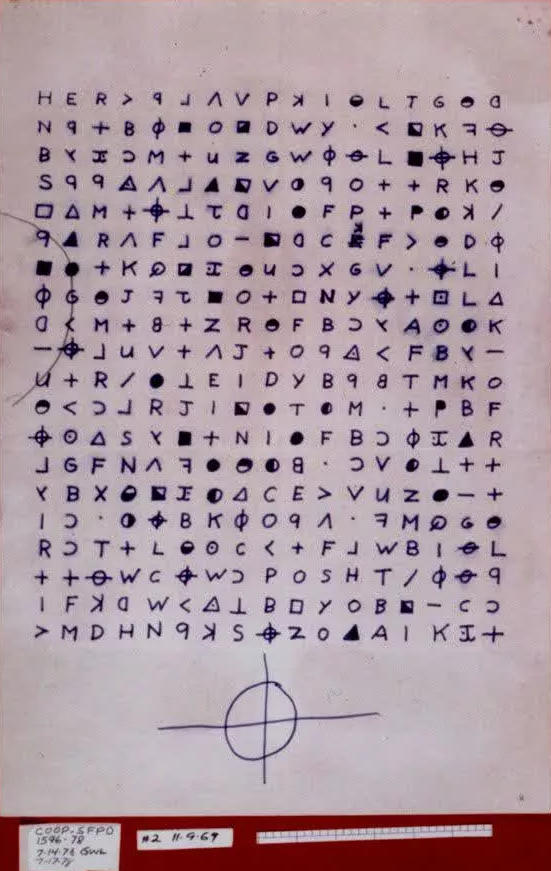 H E R > ꟼ ⅃ Λ V P ꓘ I ◒ L T G ◒ ᗡ
N ꟼ + B ɸ ■ O ◪ D W Y · < ◩ K ꟻ ⊖
B ⅄ I Ɔ M + U Z G W ɸ ⊖ L ■ ⌖ H J
S ꟼ ꟼ △ Λ ⅃ ▲ ◩ V ◑ ꟼ O + + R K ◒
□ △ M + ⌖ ⊥ τ ᗡ I ● F P + P ◐ ꓘ /
ꟼ ▲ R Λ F ⅃ O - ◩ ᗡ C K F > ◒ D ɸ
■ ● + K ⌀ ◪ I ◒ U Ɔ X G V · ⌖ L I
ɸ G ◒ J ꟻ τ ■ O + □ N Y ⌖ + ⊡ L △
ᗡ < M + 8 + Z R ◒ F B Ɔ ⅄ A ⊙ ◐ K
- ⌖ ⅃ U V + Λ J + O ꟼ △ < F B ⅄ -
U + R / ● ⊥ E I D Y B ꟼ 8 T M K O
◒ < Ɔ ⅃ R J I ◩ ● T ◐ M · + P B F
⌖ ⊙ △ S ⅄ ■ + N I ● F B Ɔ ɸ I ▲ R
⅃ G F N Λ ꟻ ● ◒ ◐ 8 · Ɔ V ◐ ⊥ + +
⅄ B X ◒ ◩ I ◐ △ C E > V U Z ● - +
I Ɔ · ◑ ⌖ B K ɸ O ꟼ Λ · ꟻ M ⌀ G ◒
R Ɔ T + L ◒ ⊙ C < + F ⅃ W B I ⊖ L
+ + ⊖ W C ⌖ W Ɔ P O S H T / ɸ ⊖ ꟼ
I F ꓘ ᗡ W < △ ⊥ B □ Y O B ◩ - C Ɔ
> M D H N ꟼ ꓘ S ⌖ Z O ▲ A I K I +
COOP-SFPD
1596-78
7-14-78 GWL
7-17-78
#2 11-9-69